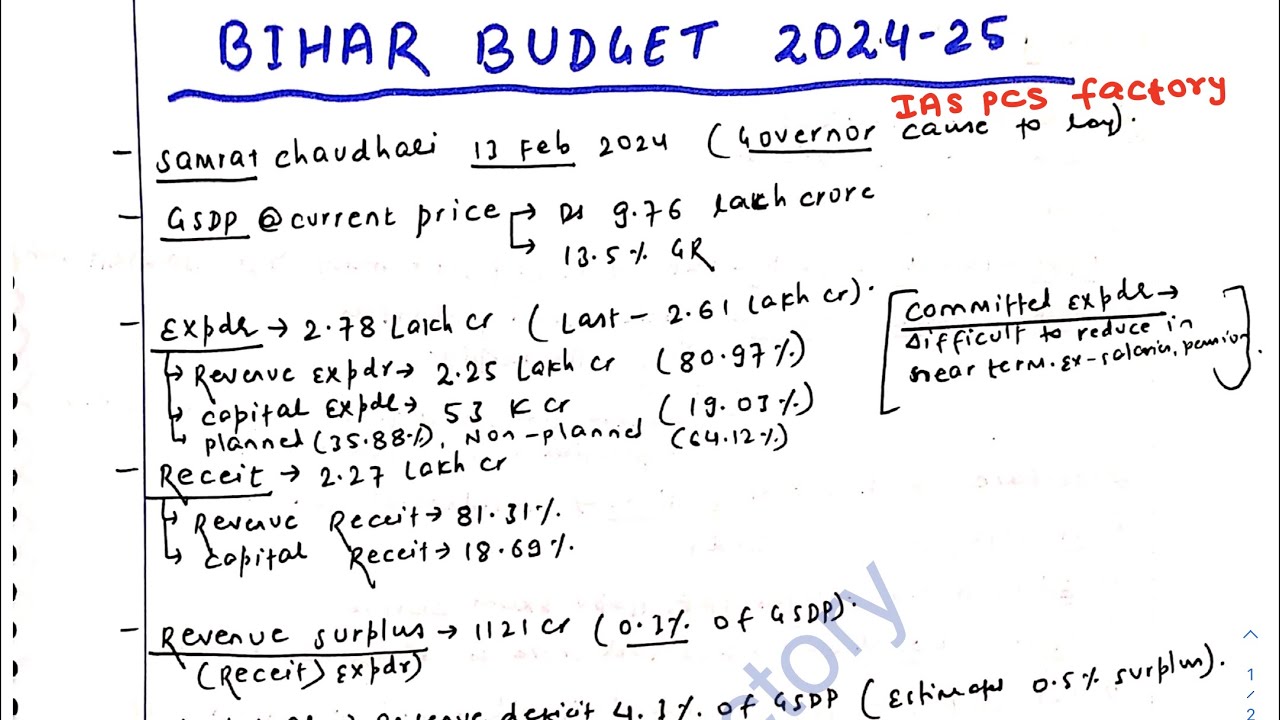 BIHAR BUDGET 2024-25.
IAS PCS factory
- Samrat Chaudhari 13 Feb 2024 (Governor cause to lay).
- GSDP @ current price → Rs 9.76 lakh crore
→ 13.5% GR
- Expdr → 2.78 Lakh cr (Last - 2.61 Lakh cr).
[Committed Expdr →
Difficult to reduce in
near term. Ex - salaries, pension.]
→ Revenue Expdr → 2.25 Lakh cr (80.97%)
→ Capital Expdr → 53 K cr (19.03%)
→ planned (35.88%), Non-planned (64.12%)
- Receit → 2.27 Lakh cr
→ Revenue Receit → 81.31%.
→ Capital Receit → 18.69%.
- Revenue surplus → 1121 cr (0.3% of GSDP).
(Receit > Expdr)
deficit 4.3% of GSDP (Estimates 0.5% surplus).
ctory
1
/
2